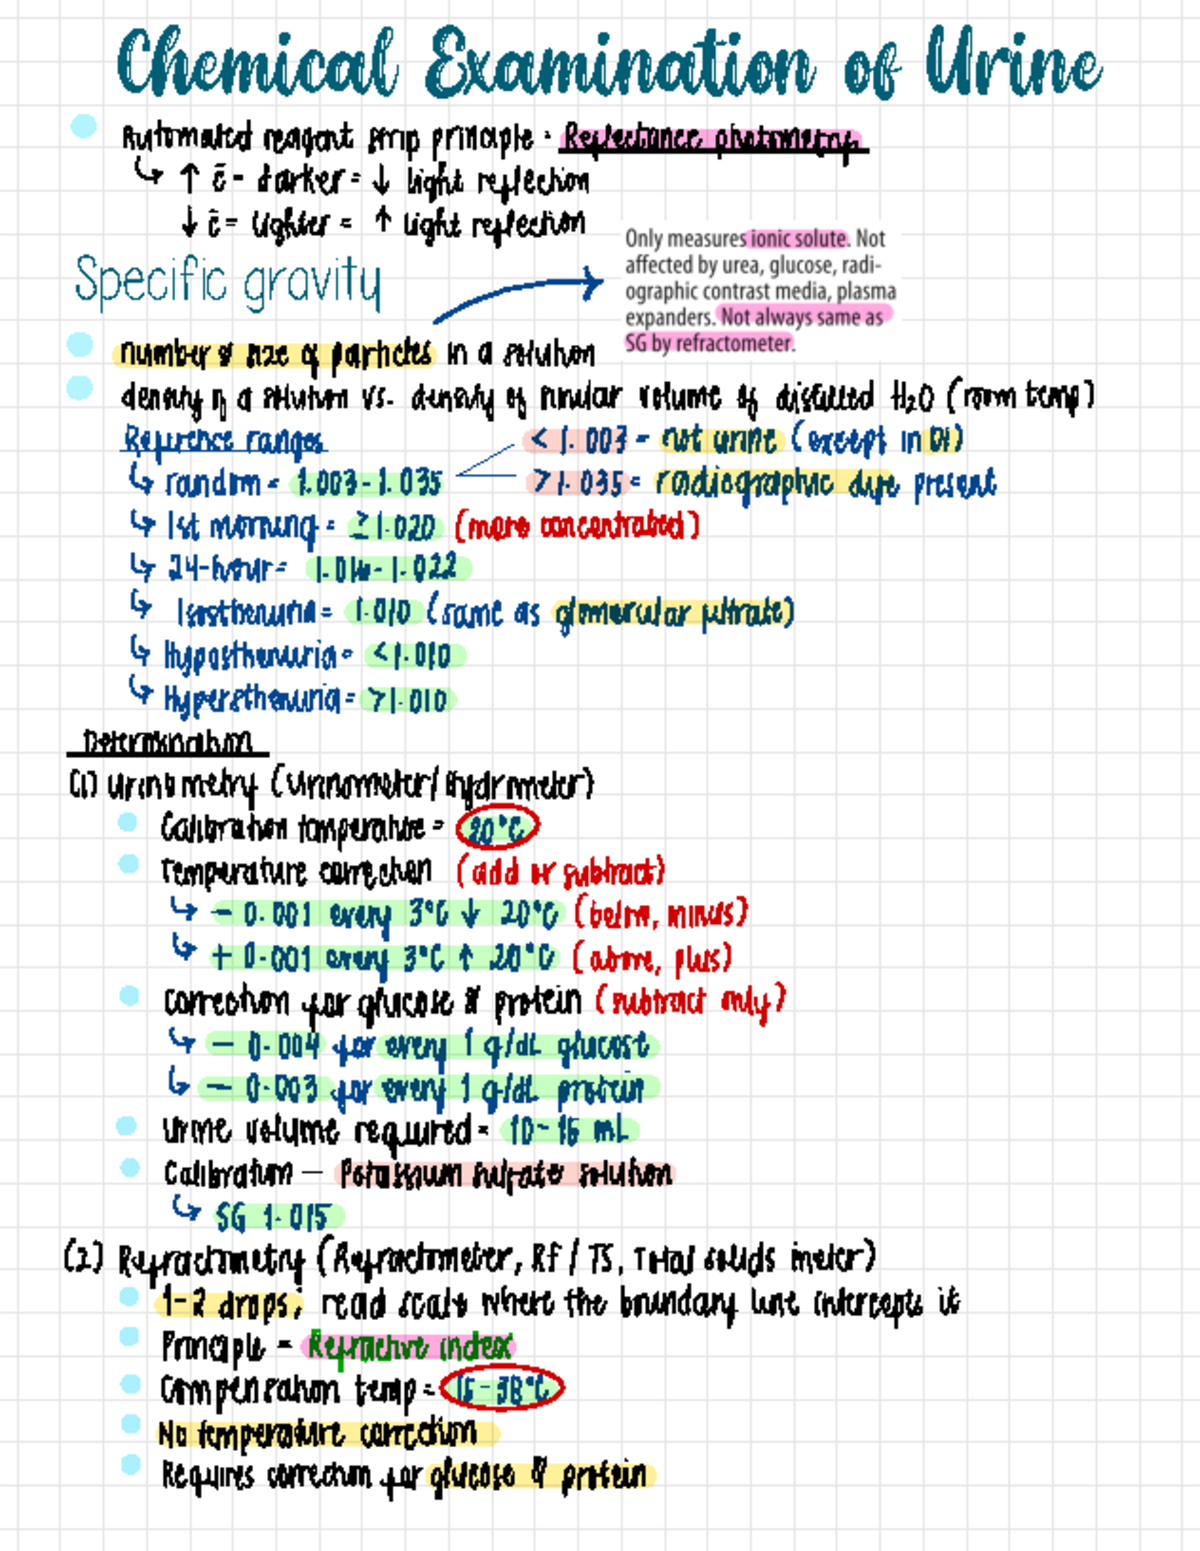 Chemical Examination of Urine
Automated reagent strip principle · Reflectance photometry
↳ ↑ c̄ - darker = ↓ light reflection
↓ c̄ = lighter = ↑ light reflection
Only measures ionic solute. Not
affected by urea, glucose, radi-
ographic contrast media, plasma
expanders. Not always same as
SG by refractometer.
Specific gravity
number & size of particles in a solution
density of a solution vs. density of similar volume of distilled H₂O (room temp)
Reference ranges
< 1.003 - not urine (except in DI)
↳ random = 1.003-1.035
> 1.035 = radiographic dye present
↳ 1st morning = ≥1.020 (more concentrated)
↳ 24-hour = 1.016-1.022
↳ Isosthenuria = 1.010 (same as glomerular filtrate)
↳ Hyposthenuria - <1.010
↳ Hypersthenuria = >1.010
Determination
(1) Urinometry (Urinometer/Hydrometer)
Calibration temperature = 20°C
Temperature correction (add or subtract)
↳ - 0.001 every 3°C ↓ 20°C (below, minus)
↳ + 0.001 every 3°C ↑ 20°C (above, plus)
correction for glucose & protein (subtract only)
↳ - 0.004 for every 1 g/dL glucose
↳ - 0.003 for every 1 g/dL protein
Urine volume required = 10-15 mL
Calibration - Potassium sulfate solution
↳ SG 1.015
(2) Refractometry (Refractometer, RF / TS, Total solids meter)
1-2 drops; read scale where the boundary line intercepts it
Principle - Refractive index
Compensation temp = 15-38°C
No temperature correction
Requires correction for glucose & protein